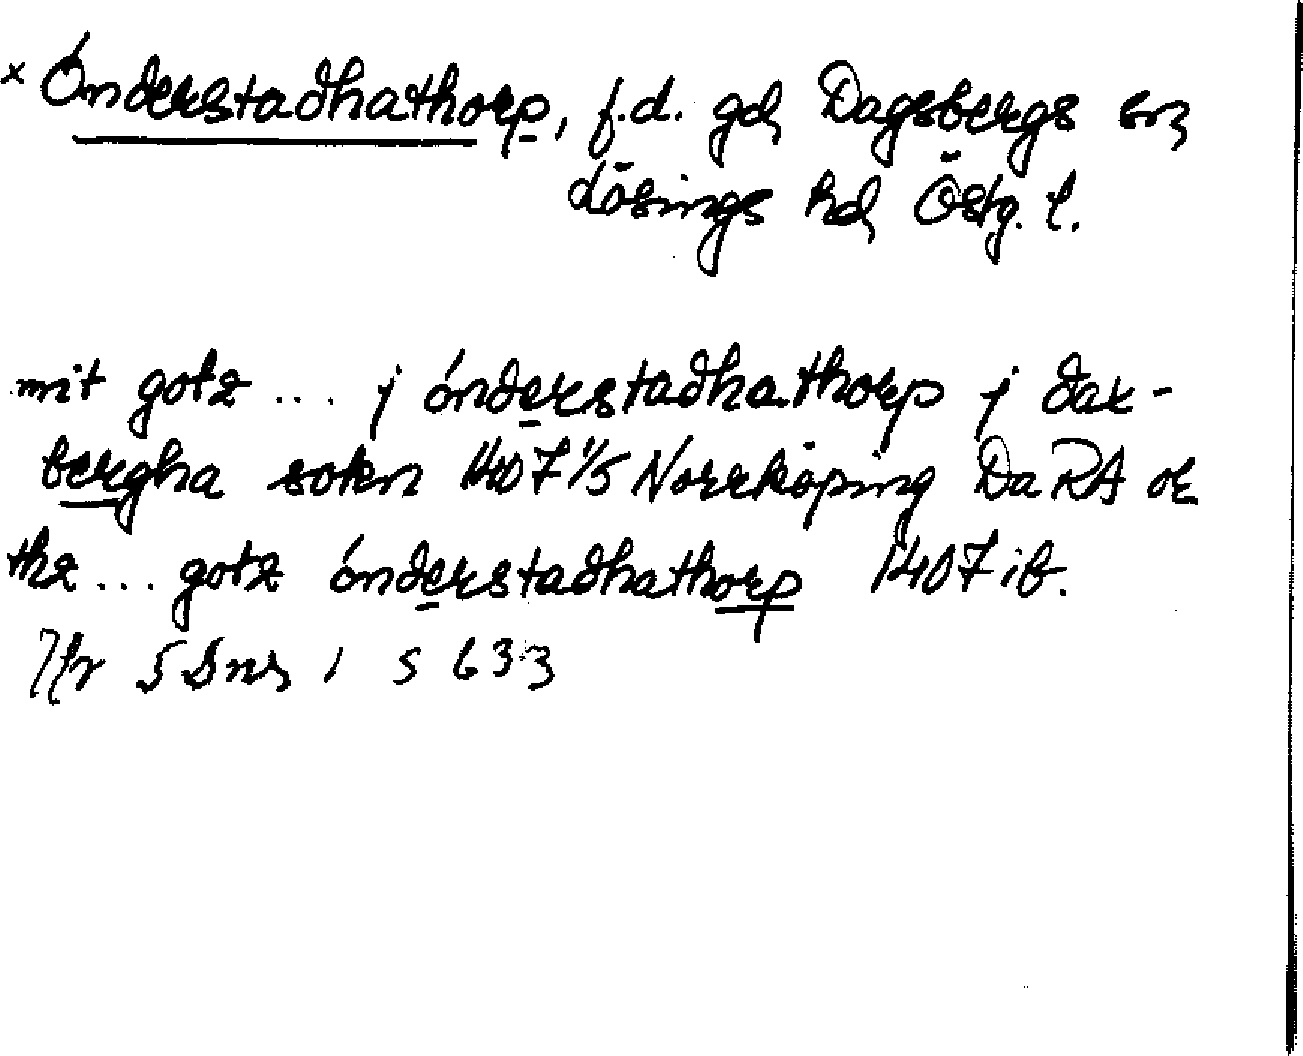 × Ónderstadhathorp, f.d. gd, Dagsbergs sn,
Lösings hd, Östg. l.
mit gotz ... j ónderstadhathorp j dax-
bergha sokn 1407 1/5 Norrköping Da RA or
thz ... gotz ónderstadhathorp 1407 ib.
Jfr SDns 1 s 633